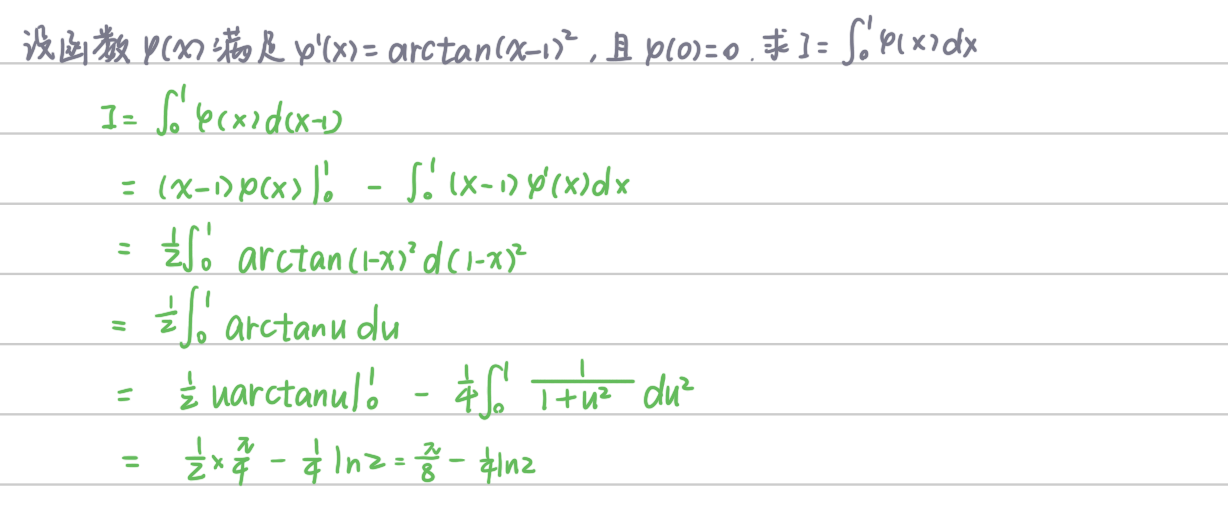 设函数φ(x)满足φ'(x)=arctan(x-1)²,且φ(0)=0.求I=∫₀¹φ(x)dx
I=∫₀¹φ(x)d(x-1)
=(x-1)φ(x)|₀¹ - ∫₀¹(x-1)φ'(x)dx
=½∫₀¹ arctan(1-x)²d(1-x)²
=½∫₀¹ arctanu du
=½ uarctanu|₀¹ - ¼∫₀¹ 1/(1+u²) du²
=½×π/4 - ¼ln2=π/8 - ¼ln2